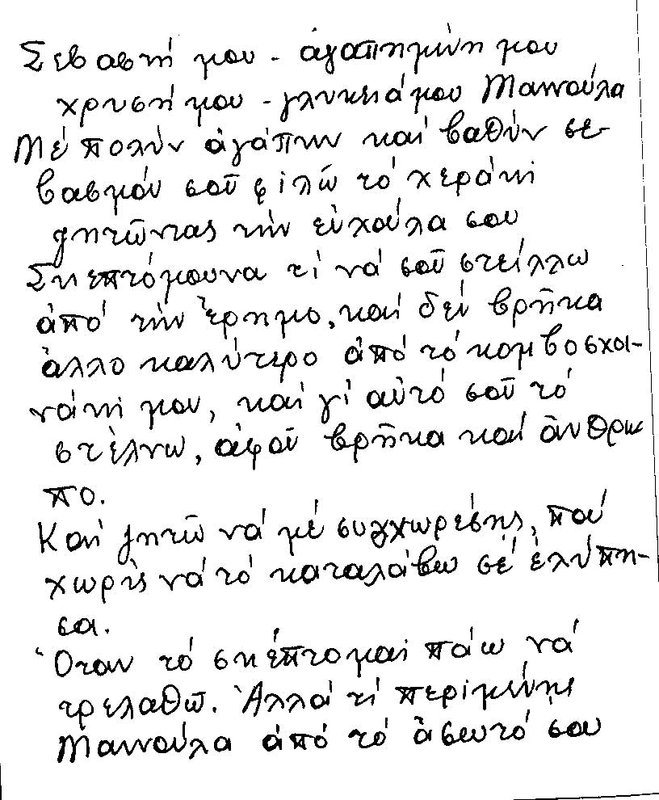 Σεβαστή μου - ἀγαπημένη μου
χρυσή μου - γλυκειά μου Μαννούλα
Μέ πολύν ἀγάπην καί βαθύν σε-
βασμόν σοῦ φιλῶ τό χεράκι
ζητῶντας τήν εὐχούλα σου
Σκεπτόμουνα τί νά σοῦ στείλλω
ἀπό τήν Ἔρημο, καί δέν βρῆκα
ἄλλο καλύτερο ἀπό τό κομβοσχοι-
νάκι μου, καί γί αὐτό σοῦ τό
στέλνω, ἀφοῦ βρῆκα καί ἄνθρω
πο.
Καί ζητῶ νά μέ συγχωρέσης, πού
χωρίς νά τό καταλάβω σέ ἐλύπη-
σα.
Ὅταν τό σκέπτομαι πάω νά
τρελαθῶ. Ἀλλά τί περιμένης
Μαννούλα ἀπό τό ἄσωτό σου